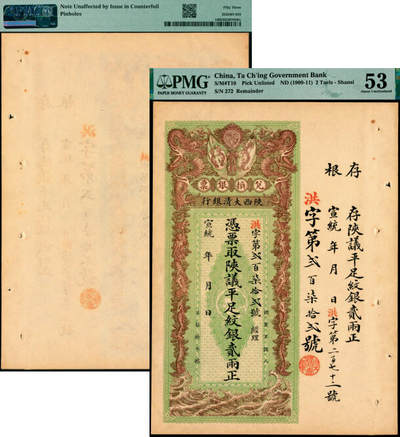 Note Unaffected by Issue in Counterfoil
Pinholes
Fifty Three
PMG
PAPER MONEY GUARANTY
China, Ta Ch'ing Government Bank
S/M#T10 Pick Unlisted ND (1909-11) 2 Taels - Shansi
S/N 272 Remainder
53
About Uncirculated
兌換銀票
陝西大清銀行
洪字第貳百柒拾貳號 經理
憑票取陝議平足紋銀貳兩正
宣統 年 月 日
存根
存陝議平足紋銀貳兩正
宣統 年 月 日 洪字第二百七十二號
洪字第貳百柒拾貳號